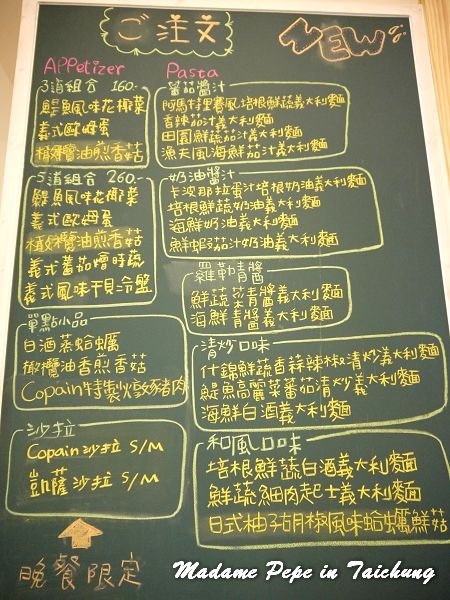 ご注文
NEW
APPetizer
3道組合 160.-
鯷魚風味花椰菜
義式歐姆蛋
橄欖油煎香菇
5道組合 260.-
鯷魚風味花椰菜
義式歐姆蛋
橄欖油煎香菇
義式蕃茄燴時蔬
義式風味干貝冷盤
單點小品
白酒蒸蛤蠣
橄欖油香煎香菇
Copain特製燉豬肉
沙拉
Copain沙拉 S/M
凱薩沙拉 S/M
晚餐限定
Pasta
蕃茄醬汁
阿馬特里賽風培根鮮蔬義大利麵
香辣茄汁義大利麵
田園鮮蔬茄汁義大利麵
漁夫風海鮮茄汁義大利麵
奶油醬汁
卡波那拉蛋汁培根奶油義大利麵
培根鮮蔬奶油義大利麵
海鮮奶油義大利麵
鮮蝦茄汁奶油義大利麵
羅勒青醬
鮮蔬菜青醬義大利麵
海鮮青醬義大利麵
清炒口味
什錦鮮蔬香蒜辣椒清炒義大利麵
鯷魚高麗菜蕃茄清炒義大利麵
海鮮白酒義大利麵
和風口味
培根鮮蔬白酒義大利麵
鮮蔬細肉起士義大利麵
日式柚子胡椒風味蛤蠣鮮菇
Madame Pepe in Taichung